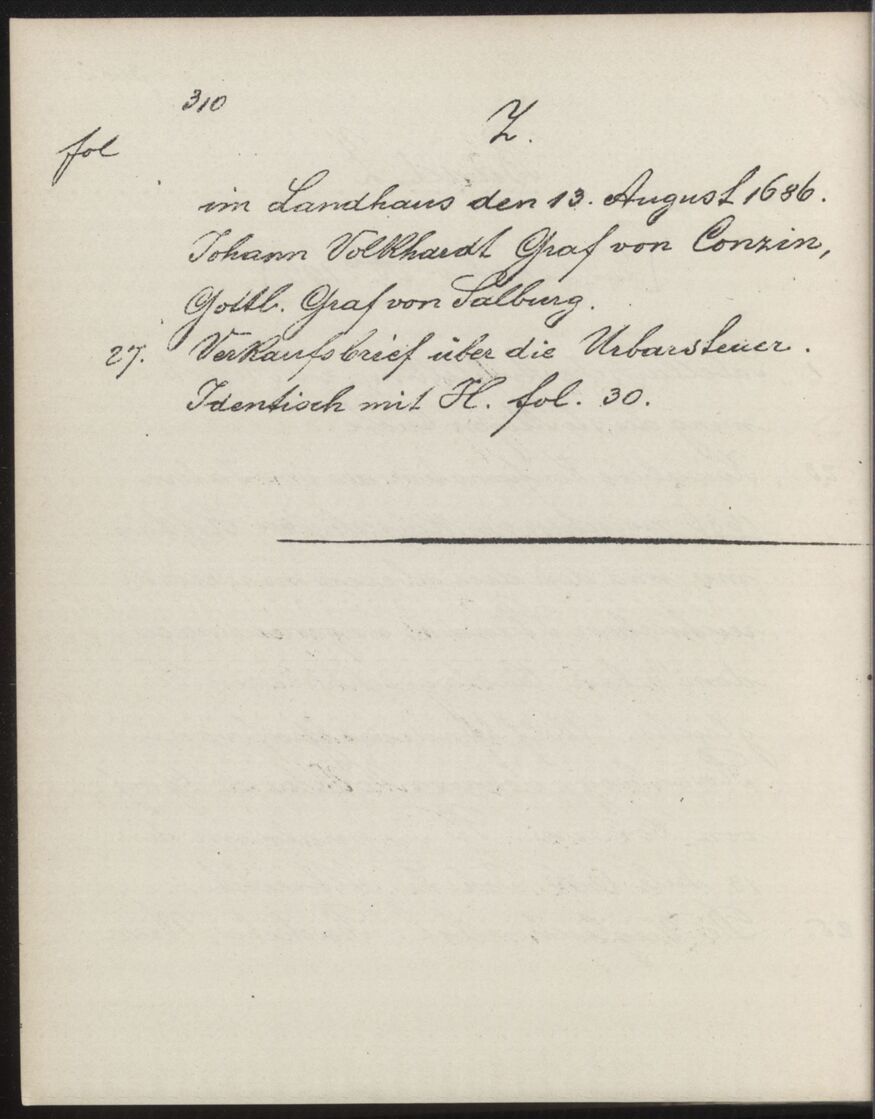 310
Z.
fol
im Landhaus den 13. August 1686.
Johann Volkhardt Graf von Conzin,
Gottl. Graf von Salburg.
27. Verkaufsbrief über die Urbarsteuer.
Identisch mit H. fol. 30.